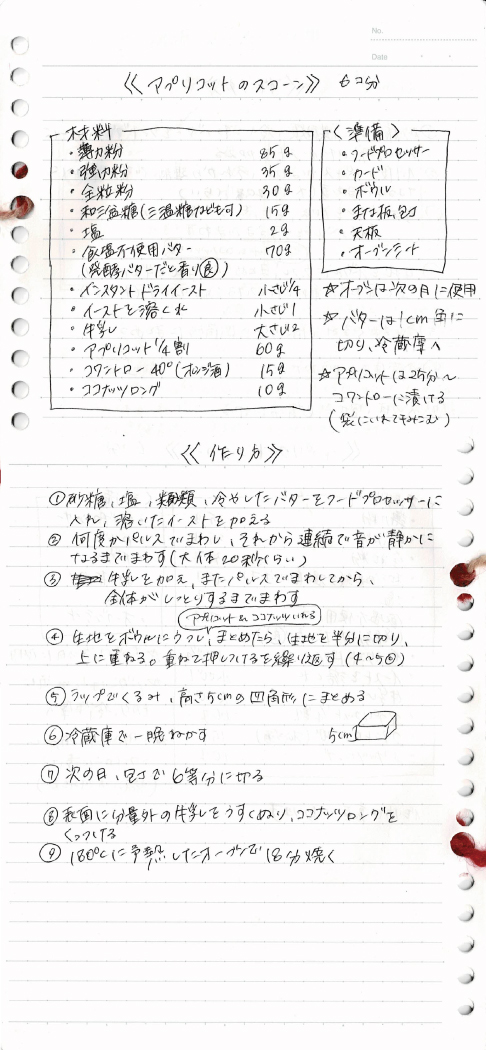 No.
Date
《アプリコットのスコーン》 6コ分
材料
・薄力粉 85g
・強力粉 35g
・全粒粉 30g
・和三盆糖(三温糖なども可) 15g
・塩 2g
・食塩不使用バター 70g
(発酵バターだと香り良)
・インスタントドライイースト 小さじ1/4
・イーストを溶く水 小さじ1
・牛乳 大さじ2
・アプリコット1/4割 60g
・コワントロー40°(オレンジ酒) 15g
・ココナッツロング 10g
〈準備〉
・フードプロセッサー
・カード
・ボウル
・まな板,包丁
・天板
・オーブンシート
☆オーブンは次の日に使用
☆バターは1cm角に
切り、冷蔵庫へ
☆アプリコットは25分〜
コワントローに漬ける
(袋にいれてもみこむ)
《作り方》
①砂糖、塩、粉類、冷やしたバターをフードプロセッサーに
入れ、溶いたイーストを加える
②何度かパルスでまわし、それから連続で音が静かに
なるまでまわす(大体20秒くらい)
③牛乳を加え、またパルスでまわしてから、
全体がしっとりするまでまわす
アプリコット&ココナッツいれる
④生地をボウルにうつし、まとめたら、生地を半分に切り、
上に重ねる。重ねて押しつけるを繰り返す(4〜5回)
⑤ラップでくるみ、高さ5cmの四角形にまとめる
⑥冷蔵庫で一晩ねかす
5cm
⑦次の日、包丁で6等分に切る
⑧表面に分量外の牛乳をうすくぬり、ココナッツロングを
くっつける
⑨180℃に予熱したオーブンで18分焼く